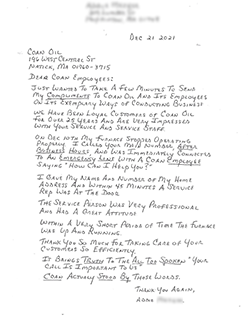 DEC 21 2021
COAN OIL
196 WEST CENTRAL ST
NATICK, MA 01760-3715
DEAR COAN EMPLOYEES:
JUST WANTED TO TAKE A FEW MINUTES TO SEND
MY COMPLIMENTS TO COAN OIL AND ITS EMPLOYEES
ON ITS EXEMPLARY WAYS OF CONDUCTING BUSINESS
WE HAVE BEEN LOYAL CUSTOMERS OF COAN OIL
FOR OVER 25 YEARS AND ARE VERY IMPRESSED
WITH YOUR SERVICE AND SERVICE STAFF.
ON DEC 14TH MY FURNACE STOPPED OPERATING
PROPERLY. I CALLED YOUR MAIN NUMBER AFTER
BUSINESS HOURS AND WAS IMMEDIATELY CONNECTED
TO AN EMERGENCY LINE WITH A COAN EMPLOYEE
SAYING "HOW CAN I HELP YOU?"
I GAVE MY NAME AND NUMBER OF MY HOME
ADDRESS AND WITHIN 45 MINUTES A SERVICE
REP WAS AT THE DOOR
THE SERVICE PERSON WAS VERY PROFESSIONAL
AND HAS A GREAT ATTITUDE
WITHIN A VERY SHORT PERIOD OF TIME THE FURNACE
WAS UP AND RUNNING.
THANK YOU SO MUCH FOR TAKING CARE OF YOUR
CUSTOMERS SO EFFICIENTLY.
IT BRINGS TRUTH TO THE ALL TOO SPOKEN "YOUR
CALL IS IMPORTANT TO US"
COAN ACTUALLY STOOD BY THOSE WORDS.
THANK YOU AGAIN,